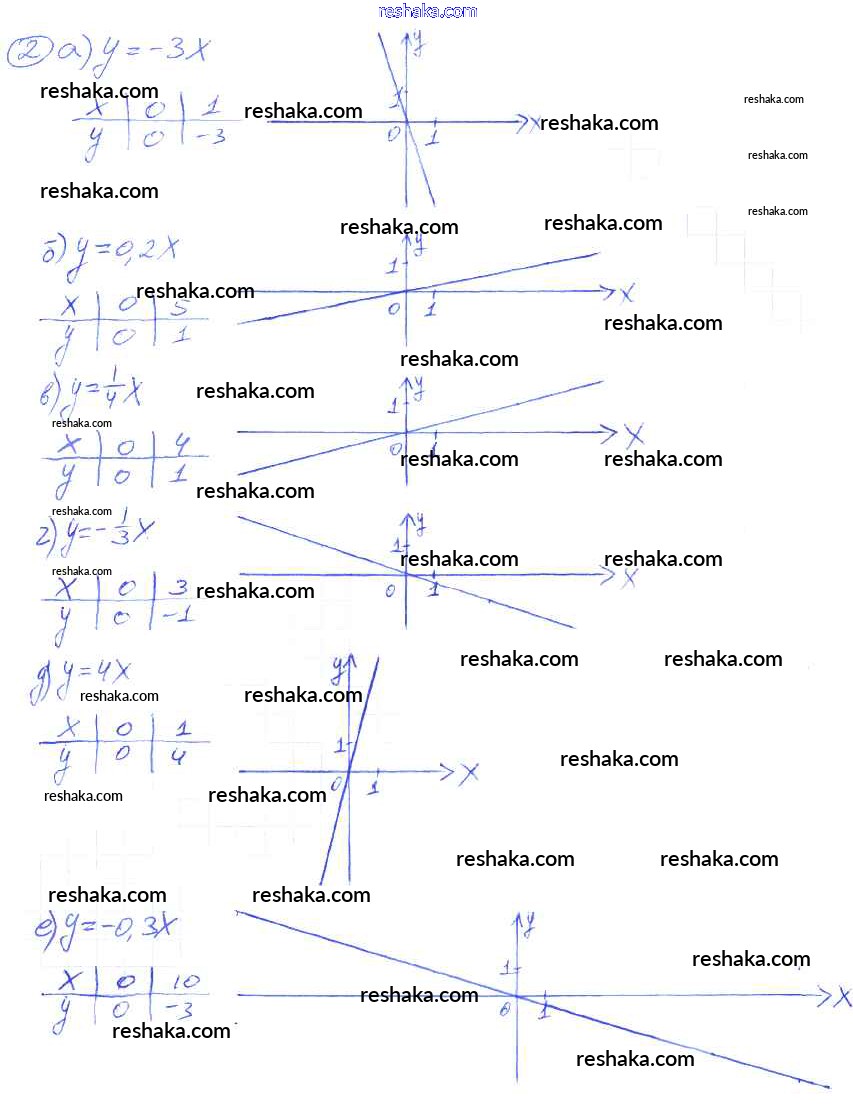 reshaka.com
② а) y = -3x
reshaka.com
x | 0 | 1
y | 0 | -3
reshaka.com
reshaka.com
reshaka.com
reshaka.com
reshaka.com
y
1
0 1 x
reshaka.com
reshaka.com
reshaka.com
б) y = 0,2x
x | 0 | 5
y | 0 | 1
reshaka.com
y
1
0 1 x
reshaka.com
reshaka.com
в) y = 1/4 x
reshaka.com
reshaka.com
x | 0 | 4
y | 0 | 1
y
1
0 1 x
reshaka.com
reshaka.com
reshaka.com
reshaka.com
г) y = -1/3 x
reshaka.com
x | 0 | 3
y | 0 | -1
reshaka.com
y
1
0 1 x
reshaka.com
reshaka.com
д) y = 4x
reshaka.com
reshaka.com
reshaka.com
reshaka.com
x | 0 | 1
y | 0 | 4
y
1
0 1 x
reshaka.com
reshaka.com
reshaka.com
reshaka.com
reshaka.com
reshaka.com
reshaka.com
е) y = -0,3x
x | 0 | 10
y | 0 | -3
y
1
0 1 x
reshaka.com
reshaka.com
reshaka.com
reshaka.com